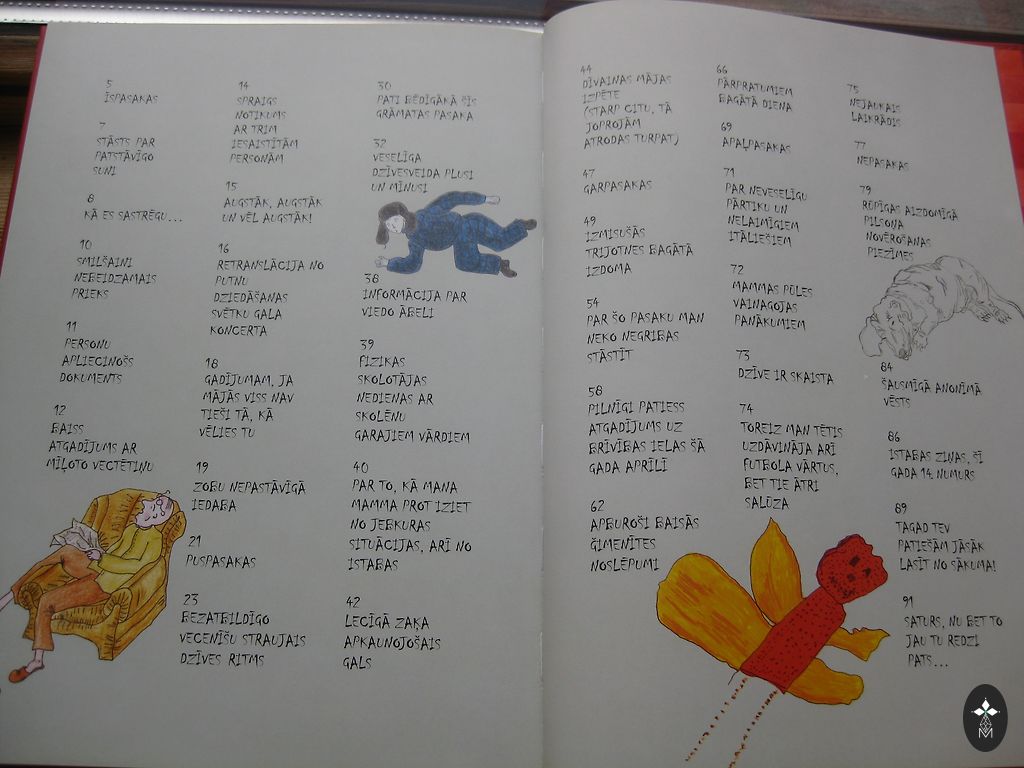 5
ĪSPASAKAS
7
STĀSTS PAR
PATSTĀVĪGO
SUNI
8
KĀ ES SASTRĒGU...
10
SMILŠAINI
NEBEIDZAMAIS
PRIEKS
11
PERSONU
APLIECINOŠS
DOKUMENTS
12
BAISS
ATGADĪJUMS AR
MĪĻOTO VECTĒTIŅU
14
SPRAIGS
NOTIKUMS
AR TRIM
IESAISTĪTĀM
PERSONĀM
15
AUGSTĀK, AUGSTĀK
UN VĒL AUGSTĀK!
16
RETRANSLĀCIJA NO
PUTNU
DZIEDĀŠANAS
SVĒTKU GALA
KONCERTA
18
GADĪJUMAM, JA
MĀJĀS VISS NAV
TIEŠI TĀ, KĀ
VĒLIES TU
19
ZOBU NEPASTĀVĪGĀ
IEDABA
21
PUSPASAKAS
23
BEZATBILDĪGO
VECENĪŠU STRAUJAIS
DZĪVES RITMS
30
PATI BĒDĪGĀKĀ ŠĪS
GRĀMATAS PASAKA
32
VESELĪGA
DZĪVESVEIDA PLUSI
UN MĪNUSI
38
INFORMĀCIJA PAR
VIEDO ĀBELI
39
FIZIKAS
SKOLOTĀJAS
NEDIENAS AR
SKOLĒNU
GARAJIEM VĀRDIEM
40
PAR TO, KĀ MANA
MAMMA PROT IZIET
NO JEBKURAS
SITUĀCIJAS, ARĪ NO
ISTABAS
42
LECĪGĀ ZAĶA
APKAUNOJOŠAIS
GALS
44
DĪVAINAS MĀJAS
IZPĒTE
(STARP CITU, TĀ
JOPROJĀM
ATRODAS TURPAT)
47
GARPASAKAS
49
IZMISUŠĀS
TRIJOTNES BAGĀTĀ
IZDOMA
54
PAR ŠO PASAKU MAN
NEKO NEGRIBAS
STĀSTĪT
58
PILNĪGI PATIESS
ATGADĪJUMS UZ
BRĪVĪBAS IELAS ŠĀ
GADA APRĪLĪ
62
APBUROŠI BAISĀS
ĢIMENĪTES
NOSLĒPUMI
66
PĀRPRATUMIEM
BAGĀTA DIENA
69
APAĻPASAKAS
71
PAR NEVESELĪGU
PĀRTIKU UN
NELAIMĪGIEM
ITĀLIEŠIEM
72
MAMMAS PŪLES
VAINAGOJAS
PANĀKUMIEM
73
DZĪVE IR SKAISTA
74
TOREIZ MAN TĒTIS
UZDĀVINĀJA ARĪ
FUTBOLA VĀRTUS,
BET TIE ĀTRI
SALŪZA
75
NEJAUKAIS
LAIKRĀDIS
77
NEPASAKAS
79
RŪPĪGAS AIZDOMĪGĀ
PILSOŅA
NOVĒROŠANAS
PIEZĪMES
84
ŠAUSMĪGĀ ANONĪMĀ
VĒSTS
86
ISTABAS ZIŅAS, ŠĪ
GADA 14. NUMURS
89
TAGAD TEV
PATIEŠĀM JĀSĀK
LASĪT NO SĀKUMA!
91
SATURS, NU BET TO
JAU TU REDZI
PATS...
M